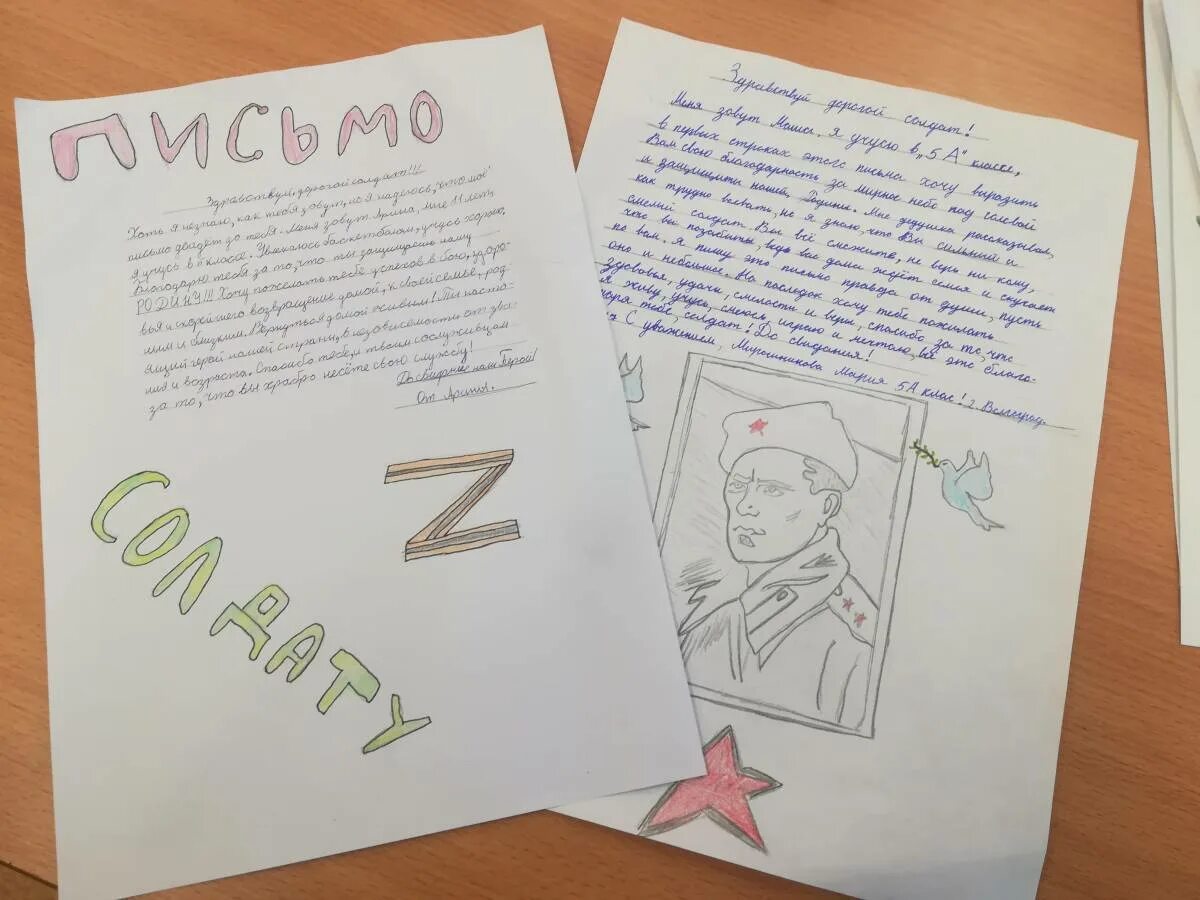 ПИСЬМО
Здравствуй, дорогой солдат!!!
Хоть я незнаю, как тебя зовут, но я надеюсь, что моё
письмо двайдёт до тебя. Меня зовут Арина, мне 11 лет,
я учусь в классе. Увлекаюсь баскетболом, учусь хорошо.
Благодарю тебя за то, что ты защищаешь нашу
РОДИНУ!!! Хочу пожелать тебе успехов в бою, здоро-
вья и скорейшего возвращение домой, к своей семье, род-
ным и близким. Вернуться домой живым! Ты насто-
ящий герой нашей страны, в независемости от зва-
ния и возраста. Спасибо тебе, и твоим сослуживцам
за то, что вы храбро несёте свою службу!
До свидание наш Герой!
От Арины.
Z
СОЛДАТУ
Здравствуй дорогой солдат!
Меня зовут Маша. Я учусю в "5 А" классе,
в первых строках этого письма хочу выразить
Вам свою благодарность за мирное небо под головой
и защищити нашей Родины. Мне дедушка рассказывал,
как трудно воевать, но я знаю, что Вы сильный и
смелый солдат. Вы всё сможите, не верь ни кому,
что вы позабыты, ведь вас дома ждёт семья и скучает
по вам. Я пишу это письмо правда от души, пусть
оно и небольшое. На последок хочу тебе пожилать
здоровья, удачи, смелости и веры, спасибо за то, что
я живу, учусь, смеюсь, играю и мечтаю, всё это благо-
даря тебе, солдат! До свидания!
С уважением, Мирошникова Мария 5А клас! г. Волгоград.